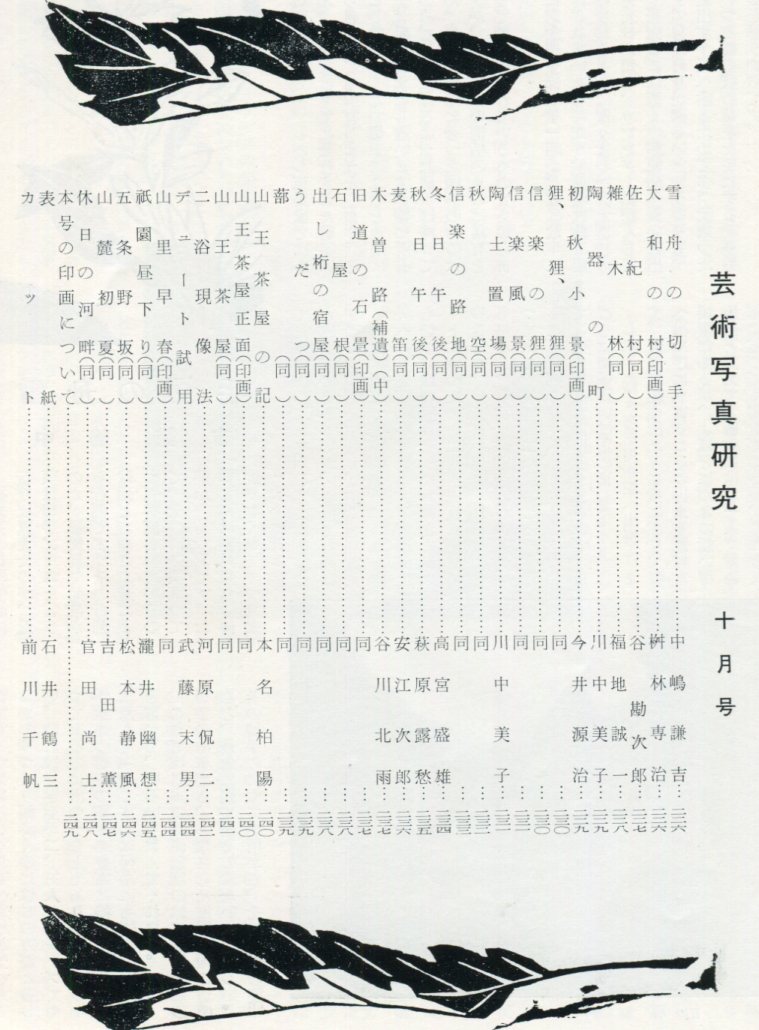 芸術写真研究　十月号
雪舟の切手……中嶋謙吉…二二六
大和の村(印画)……桝林専治…二二六
佐紀村(同)……谷勘次郎…二二七
雑木林(同)……福地誠一…二二八
陶器の町……川中美子…二二九
初秋小景(印画)……今井源治…二二九
狸、狸、狸(同)……同…二三〇
信楽の狸(同)……同…二三〇
信楽風景(同)……同…二三一
陶土置場(同)……川中美子…二三一
秋空(同)……同…二三二
信楽の路地(同)……同…二三三
冬日午後(同)……高宮盛雄…二三四
秋日午後(同)……萩原露愁…二三五
麦笛(同)……安江次郎…二三六
木曽路(補遺)(中)……谷川北雨…二三七
旧道の石畳(印画)……同…二三七
石屋根(同)……同…二三八
出し桁の宿屋(同)……同…二三八
うだつ(同)……同…二三九
蔀(同)……同…二三九
山王茶屋の記……本名柏陽…二四〇
山王茶屋正面(印画)……同…二四〇
山王茶屋(同)……同…二四一
二浴現像法……河原侃二…二四二
デュート試用……武藤末男…二四四
山里早春(印画)……同…二四四
祇園昼下り(同)……瀧井幽想…二四五
五条野坂(同)……松本静風…二四六
山麓初夏(同)……吉田薫…二四七
休日の河畔(同)……官田尚士…二四八
本号の印画について……二四九
表紙……石井鶴三
カット……前川千帆